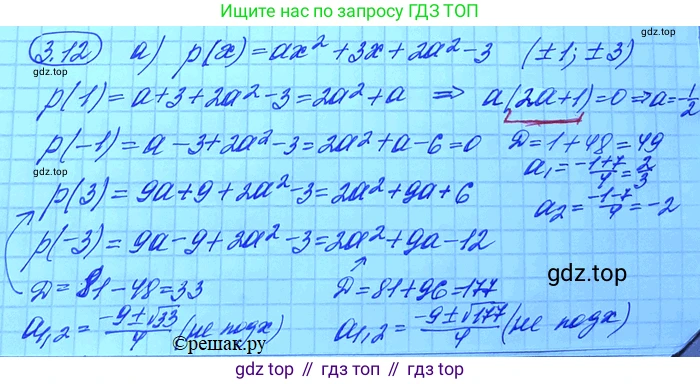 Ищите нас по запросу ГДЗ ТОП
3.12 а) p(x) = ax² + 3x + 2a² - 3 (±1; ±3)
gdz.top
p(1) = a + 3 + 2a² - 3 = 2a² + a ⇒ a(2a+1) = 0 ⇒ a = -1/2
gdz.top
p(-1) = a - 3 + 2a² - 3 = 2a² + a - 6 = 0 D = 1 + 48 = 49
a₁ = (-1+7)/4 = 2/3
gdz.top
p(3) = 9a + 9 + 2a² - 3 = 2a² + 9a + 6 a₂ = (-1-7)/4 = -2
p(-3) = 9a - 9 + 2a² - 3 = 2a² + 9a - 12
gdz.top
D = 81 - 48 = 33 D = 81 + 96 = 177
a₁,₂ = (-9±√33)/4 (не подх) a₁,₂ = (-9±√177)/4 (не подх)
©решак.ру
gdz.top // гдз.топ // gdz.top // гдз.топ